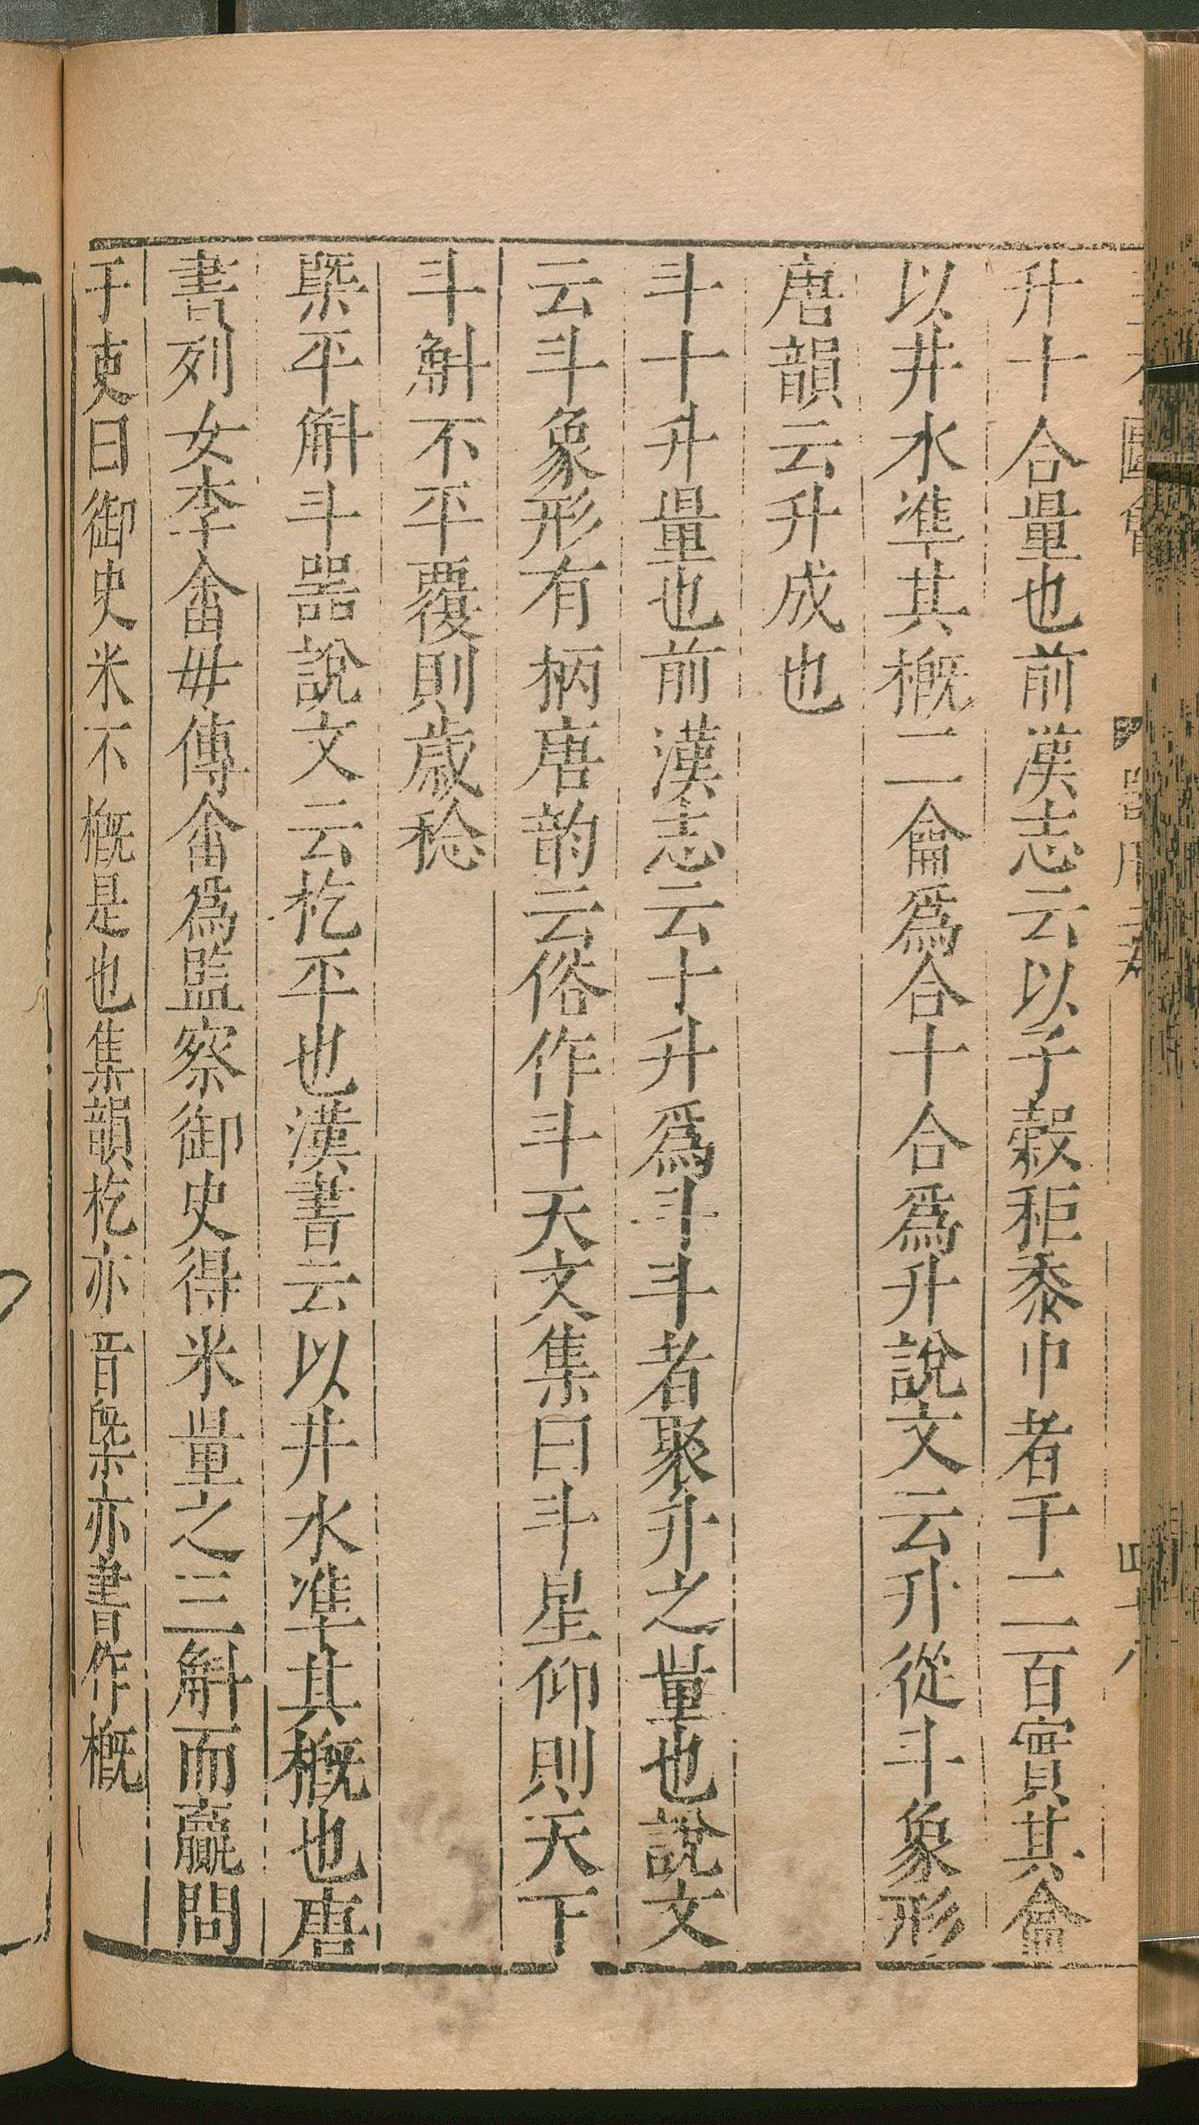 升十合量也前漢志云以子穀秬黍巾者千二百實其龠
以井水準其槪二龠爲合十合爲升說文云升從斗象形
唐韻云升成也
斗十升量也前漢志云十升爲斗斗者聚升之量也說文
云斗象形有柄唐韵云俗作斗天文集曰斗星仰則天下
斗斛不平覆則歲稔
槩平斛斗器說文云杚平也漢書云以井水準其槪也唐
書列女李畬毋傳畬爲監察御史得米量之三斛而贏問
于吏曰御史米不槪是也集韻杚亦音槩亦書作槪